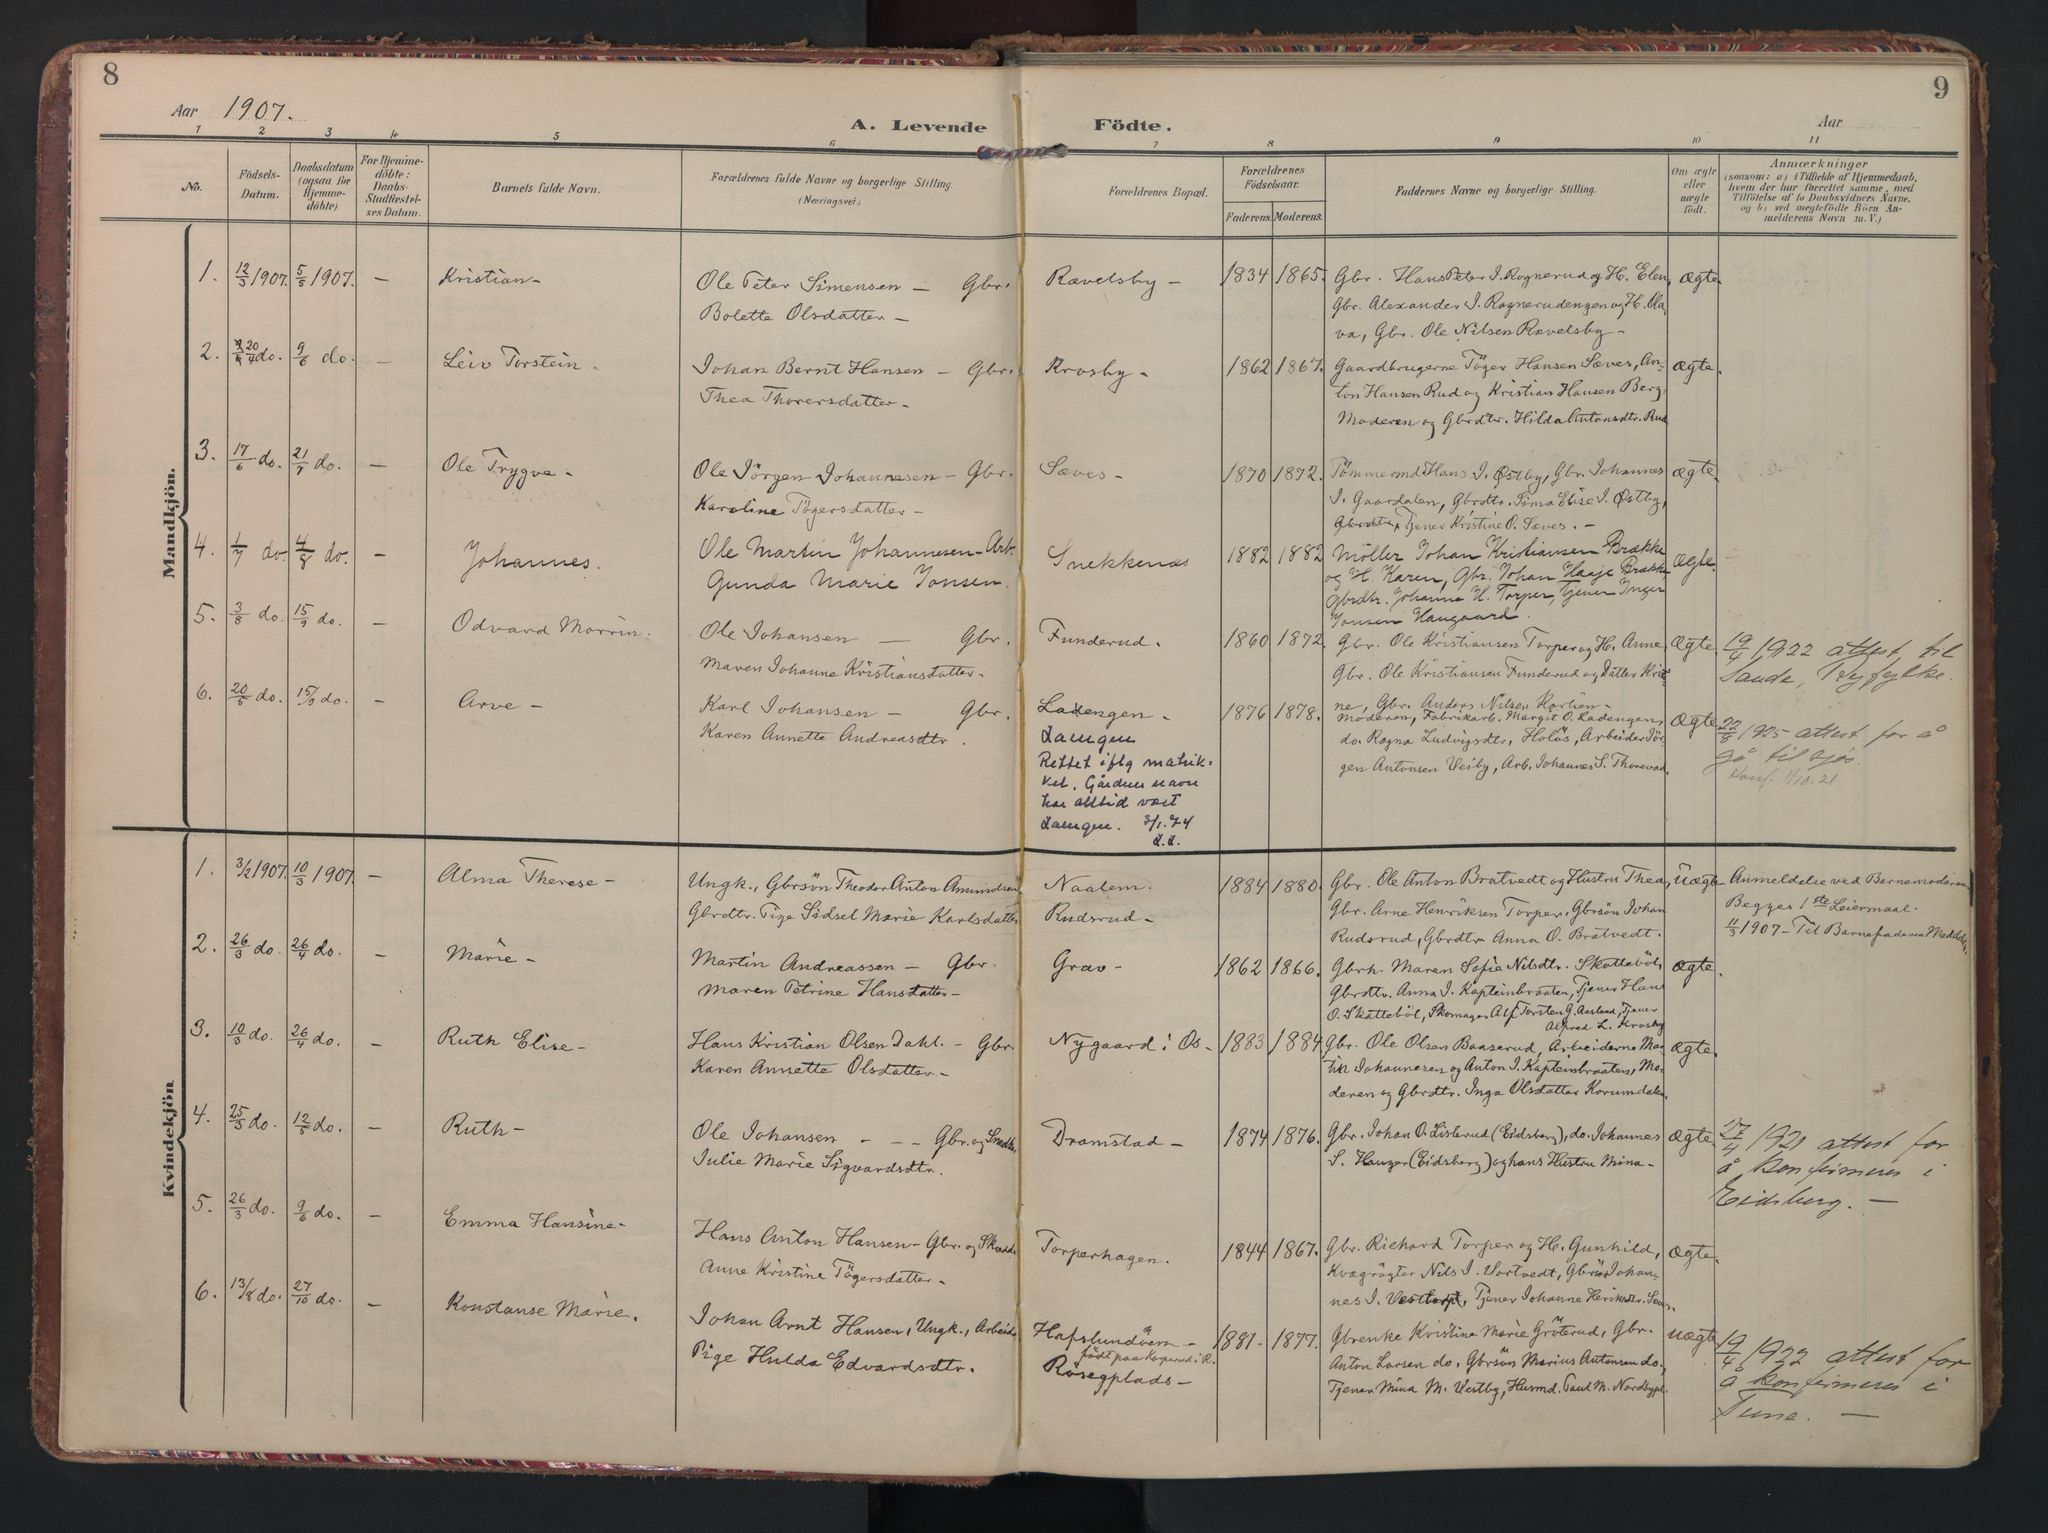 8
9
Aar 1907.
A. Levende Födte.
Aar
1 2 3 4 5 6 7 8 9 10 11
No.
Födsels-Datum.
Daabsdatum (ogsaa for Hjemmedöbte)
For Hjemmedöbte: Daabs-Stadfæstelses Datum.
Barnets fulde Navn.
Forældrenes fulde Navne og borgerlige Stilling. (Næringsvei.)
Forældrenes Bopæl.
Forældrenes Födselsaar.
Faderens. Moderens.
Faddernes Navne og borgerlige Stilling.
Om ægte eller uægte födt.
Anmærkninger
(saasom: a) i Tilfælde af Hjemmedaab,
hvem der har forrettet samme, med
Tilföielse af to Daabsvidners Navne,
og b) ved uægtefödte Börn An-
melderens Navn m. V.)
Mandkjön.
1. 12/3 1907. 5/5 1907. — Kristian — Ole Peter Simensen — Gbr. Rævelsby — 1834 1865. Gbr. Hans Peter J. Rognerud og H. Elen, Ægte.
Bolette Olsdatter — Gbr. Alexander J. Rognerudengen og H. Ola-
va, Gbr. Ole Nilsen Rævelsby —
2. 20/4 do. 9/6 do. — Leiv Torstein. Johan Bernt Hansen — Gbr. Krosby — 1862 1867. Gaardbrugerne Töger Hansen Sæves, An- Ægte.
Thea Thorersdatter — ton Hansen Rud og Kristian Hansen Berg
Moderen og Gbrdtr. Hilda Antonsdtr. Rud
3. 17/6 do. 21/7 do. — Ole Trygve — Ole Jörgen Johannesen — Gbr. Sæves — 1870 1872. Tömmermd. Hans J. Østby, Gbr. Johannes Ægte.
Karoline Tögersdatter — J. Gaardalen, Gbrdtr. Sima Elise J. Østby,
Tjener Kristine O. Sæves. —
4. 1/7 do. 4/8 do. — Johannes. Ole Martin Johannesen — Arb. Snekkenæs 1882 1882 Möller Johan Kristiansen Brække Ægte.
Gunda Marie Jonsen. og H. Karen, Gbr. Johan Haaje Brække
Gbrdtr. Johanne H. Torper, Tjener Inger
Jonsen Haugaard.
5. 3/8 do. 15/9 do. — Odvard Morrin. Ole Johansen — Gbr. Funderud. 1860 1872. Gbr. Ole Kristiansen Torper og H. Anne Ægte. 19/4 1922 attest til
Maren Johanne Kristiansdatter — Gbr. Ole Kristiansen Funderud og Datter Kris- Sande, Ryfylke.
ne, Gbr. Anders Nilsen
6. 20/5 do. 15/9 do. — Arve — Karl Johansen — Gbr. Ladengen — 1876 1878. Moderen, Fabrikarb. Margit O. Ladengen, Ægte. 22/8 1925 attest for å
Karen Annette Andreasdtr. do. Ragna Ludvigsdtr, Holös, Arbeider Jör- gå til sjös.
gen Antonsen Veiby, Arb. Johannes S. Thorerud. Konf. 1/10. 21
Laengen
Rettet iflg matrik-
kel. Gårdens navn
har alltid vært
Laengen. 3/1.74
Kvindekjön
1. 3/2 1907. 10/3 1907. — Alma Therese — Ungk., Gbrsön Theodor Anton Amundsen Naalem. 1884 1880. Gbr. Ole Anton Bratvedt og Hustru Thea, Uægte Anmeldelse ved Barnemoderen.
Gbrdtr. Pige Sidsel Marie Karlsdatter Rudsrud — Gbr. Arne Henriksen Torper, Gbrsön Johan Begges 1ste Leiermaal.
Rudsrud, Gbrdtr. Anna O. Bratvedt. 11/3 1907 — Til Barnefaderen Meddelse.
2. 26/3 do. 26/4 do. — Marie — Martin Andreassen — Gbr. Grav — 1862 1866. Gbrk. Maren Sofie Nilsdtr. Skattebøl, Ægte.
Maren Petrine Hansdatter — Gbrdtr. Anna J. Kapteinbraaten, Tjener Hans
O. Skattebøl, Skomager Alf Torsten G. Aasland, Tjener
Alfred L. Krosby
3. 10/3 do. 26/4 do. — Ruth Elise — Hans Kristian Olsen Dahl. — Gbr. Nygaard i Os — 1883 1884 Gbr. Ole Olsen Baaserud, Arbeiderne Mar- Ægte.
Karen Annette Olsdatter — tin Johannesen og Anton J. Kapteinbraaten, Mo-
deren og Gbrdtr. Inga Olsdatter Korumdalen.
4. 25/3 do. 12/5 do. — Ruth — Ole Johansen — — Gbr. og Snedker Dramstad — 1874 1876. Gbr. Johan O. Listerud (Eidsberg), do. Johannes Ægte. 17/4 1921 attest for
Julie Marie Sigvardsdtr. S. Hauger (Eidsberg) og hans Hustru Mina — å konfirmeres i
Eidsberg. —
5. 26/3 do. 9/6 do. — Emma Hansine — Hans Anton Hansen — Gbr. og Skrædd. Torperhagen. 1844 1867. Gbr. Richard Torper og H. Gunhild, Ægte.
Anne Kristine Tögersdatter — Kvægrögter Nils J. Vortvedt, Gbrsön Johan-
nes J. Vestorpt, Tjener Johanne Henriksdtr.
6. 13/8 do. 27/10 do. — Konstanse Marie. Johan Arnt Hansen, Ungk., Arbeider Hafslundöen — 1881. 1877. Gbrenke Kristine Marie Gröterud, Gbr. uægte 19/4 1922 attest for
födt paa Korperud i R.
Pige Hulda Edvardsdtr. Rösegplads — Anton Larsen do, Gbrsön Marius Antonsen do, å konfirmeres i
Tjener Mina M. Vestby, Husmd. Paul M. Nordbypl. Tune. —